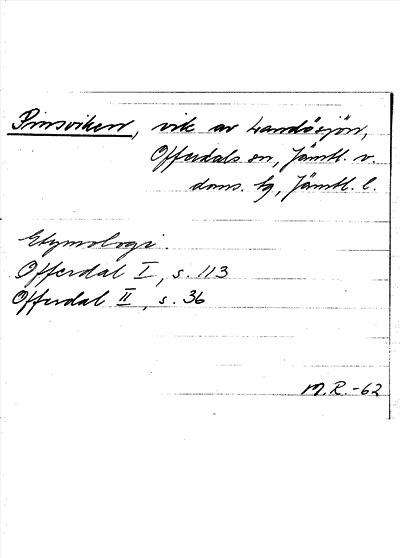 Prinsviken, vik av Landösjön,
Offerdals sn, Jämtl. v.
doms. tg, Jämtl. l.
Etymologi.
Offerdal I, s. 113
Offerdal II, s. 36
M.R.-62